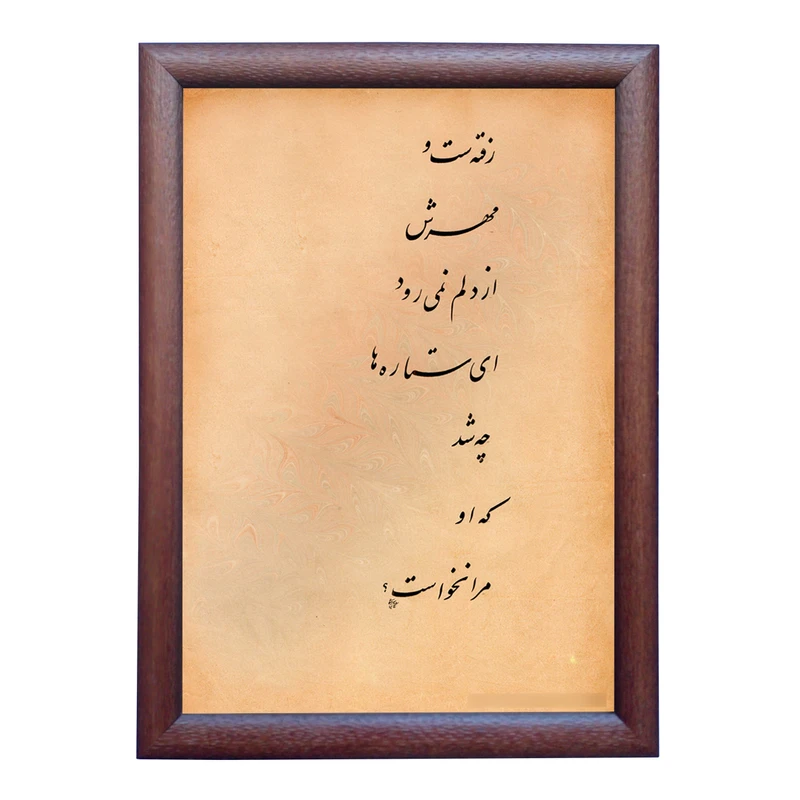 رفته‌ست و
مهرش
از دلم نمی‌رود
ای ستاره‌ها
چه شد
که او
مرا نخواست؟